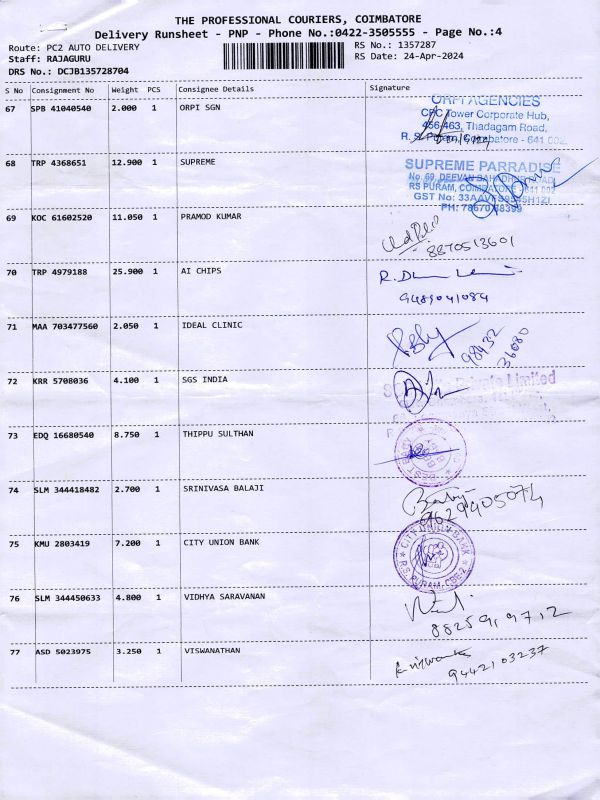 THE PROFESSIONAL COURIERS, COIMBATORE
Delivery Runsheet - PNP - Phone No.:0422-3505555 - Page No.:4
Route: PC2 AUTO DELIVERY
RS No.: 1357287
Staff: RAJAGURU
RS Date: 24-Apr-2024
DRS No.: DCJB135728704
S No Consignment No Weight PCS Consignee Details Signature
67 SPB 41040540 2.000 1 ORPI SGN
ORPI AGENCIES
CPC Tower Corporate Hub,
456-463, Thadagam Road,
R. S. Puram, Coimbatore - 641 002.
68 TRP 4368651 12.900 1 SUPREME
SUPREME PARRADISE
No. 69,
RS PURAM, COIMBATORE - 641 002
GST No:
PH:
69 KOC 61602520 11.050 1 PRAMOD KUMAR
8870513601
70 TRP 4979188 25.900 1 AI CHIPS
9489041084
71 MAA 703477560 2.050 1 IDEAL CLINIC
98432
36080
72 KRR 5708036 4.100 1 SGS INDIA
Private Limited
73 EDQ 16680540 8.750 1 THIPPU SULTHAN
74 SLM 344418482 2.700 1 SRINIVASA BALAJI
9629405074
75 KMU 2803419 7.200 1 CITY UNION BANK
CITY UNION BANK
R.S. PURAM, CBE-2
76 SLM 344450633 4.800 1 VIDHYA SARAVANAN
8825919712
77 ASD 5023975 3.250 1 VISWANATHAN
9442103237